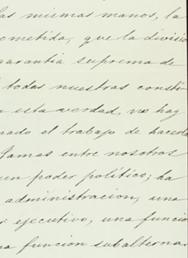 las mismas manos, la
ometida, que la divisió
garantia suprema de
todas nuestras constit
esta verdad, no hay
nado el trabajo de hacerla
tamas entre nosotros
un poder político; ha
administracion, una
ejecutivo, una funcio
na funcion subalterna.